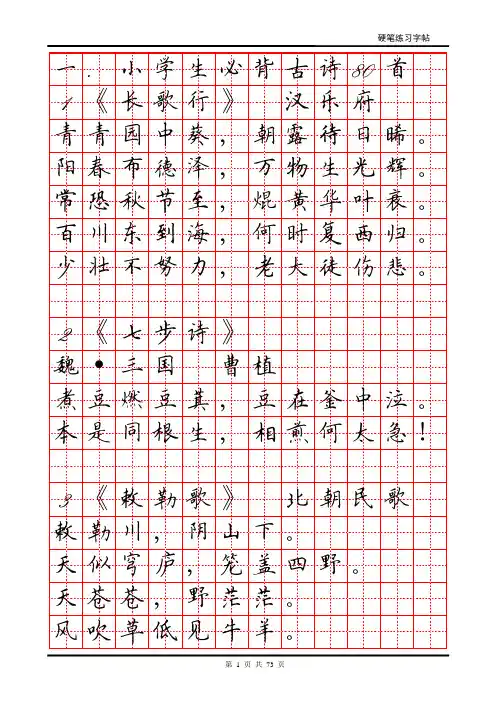 硬笔练习字帖
一.小学生必背古诗80首
1《长歌行》 汉乐府
青青园中葵，朝露待日晞。
阳春布德泽，万物生光辉。
常恐秋节至，焜黄华叶衰。
百川东到海，何时复西归。
少壮不努力，老大徒伤悲。
2《七步诗》
魏•三国 曹植
煮豆燃豆萁，豆在釜中泣。
本是同根生，相煎何太急！
3《敕勒歌》 北朝民歌
敕勒川，阴山下。
天似穹庐，笼盖四野。
天苍苍，野茫茫。
风吹草低见牛羊。
第 1 页 共 73 页